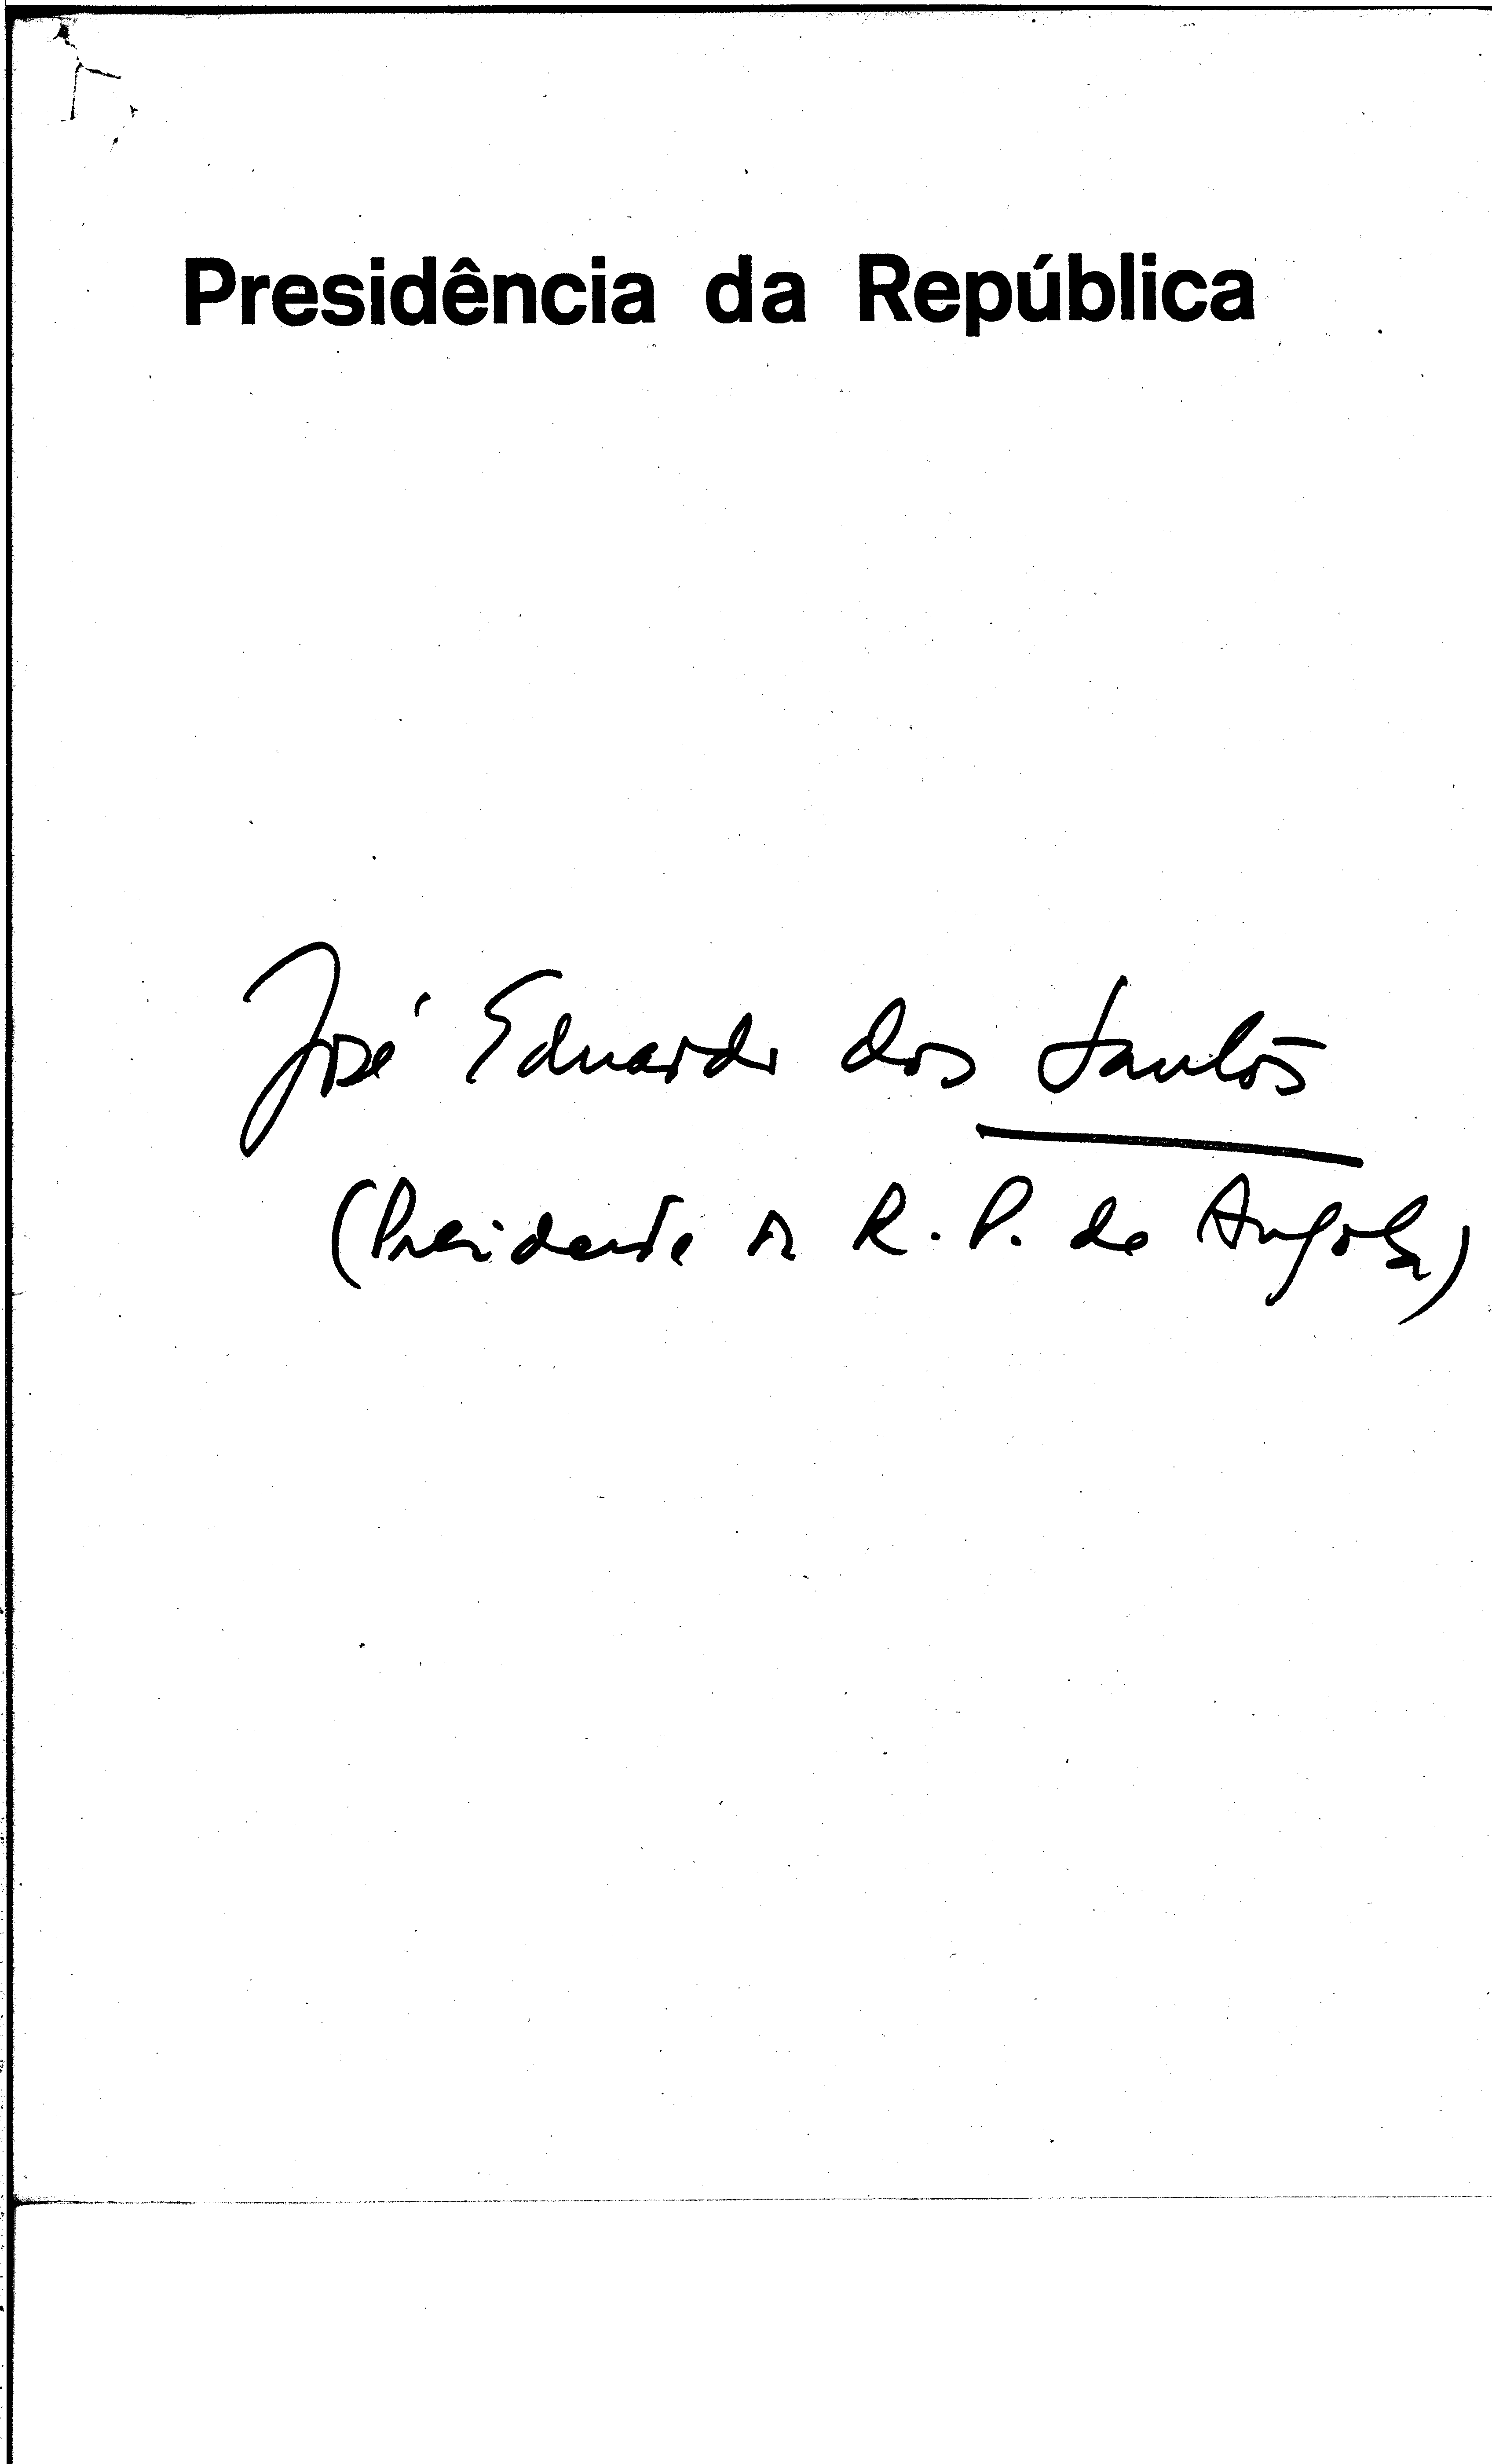 Presidência da República
José Eduardo dos Santos
(Presidente da R. P. de Angola)